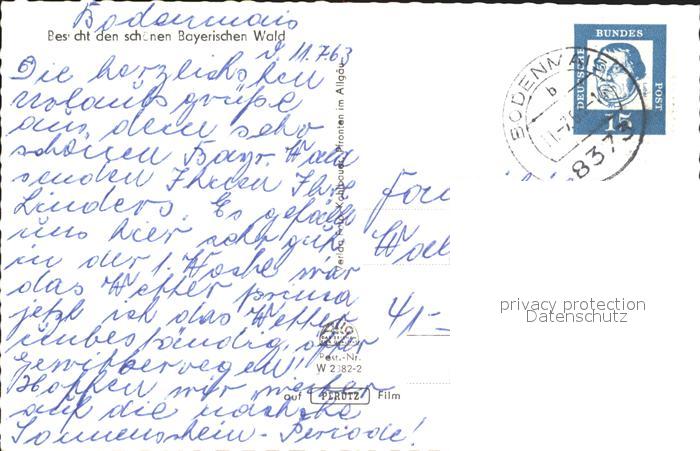 Bodenmais
Besucht den schönen Bayerischen Wald
d. 11.7.63
Die herzlichsten
Urlaubsgrüße
aus dem sehr
schönen Bayr. Wald
senden Ihnen Ihre
Linders. Es gefällt
uns hier sehr gut.
in der 1. Woche war
das Wetter prima
jetzt ist das Wetter
unbeständig, aber
Gewitterregen!
Hoffen wir weiter
auf die nächste
Sonnenschein-Periode!
Kohlbauer, Pfronten im Allgäu
Best.-Nr.
W 2382-2
auf PERUTZ Film
DEUTSCHE BUNDES POST
15
BODENMAIS
b
8373
Fam
41-
privacy protection
Datenschutz